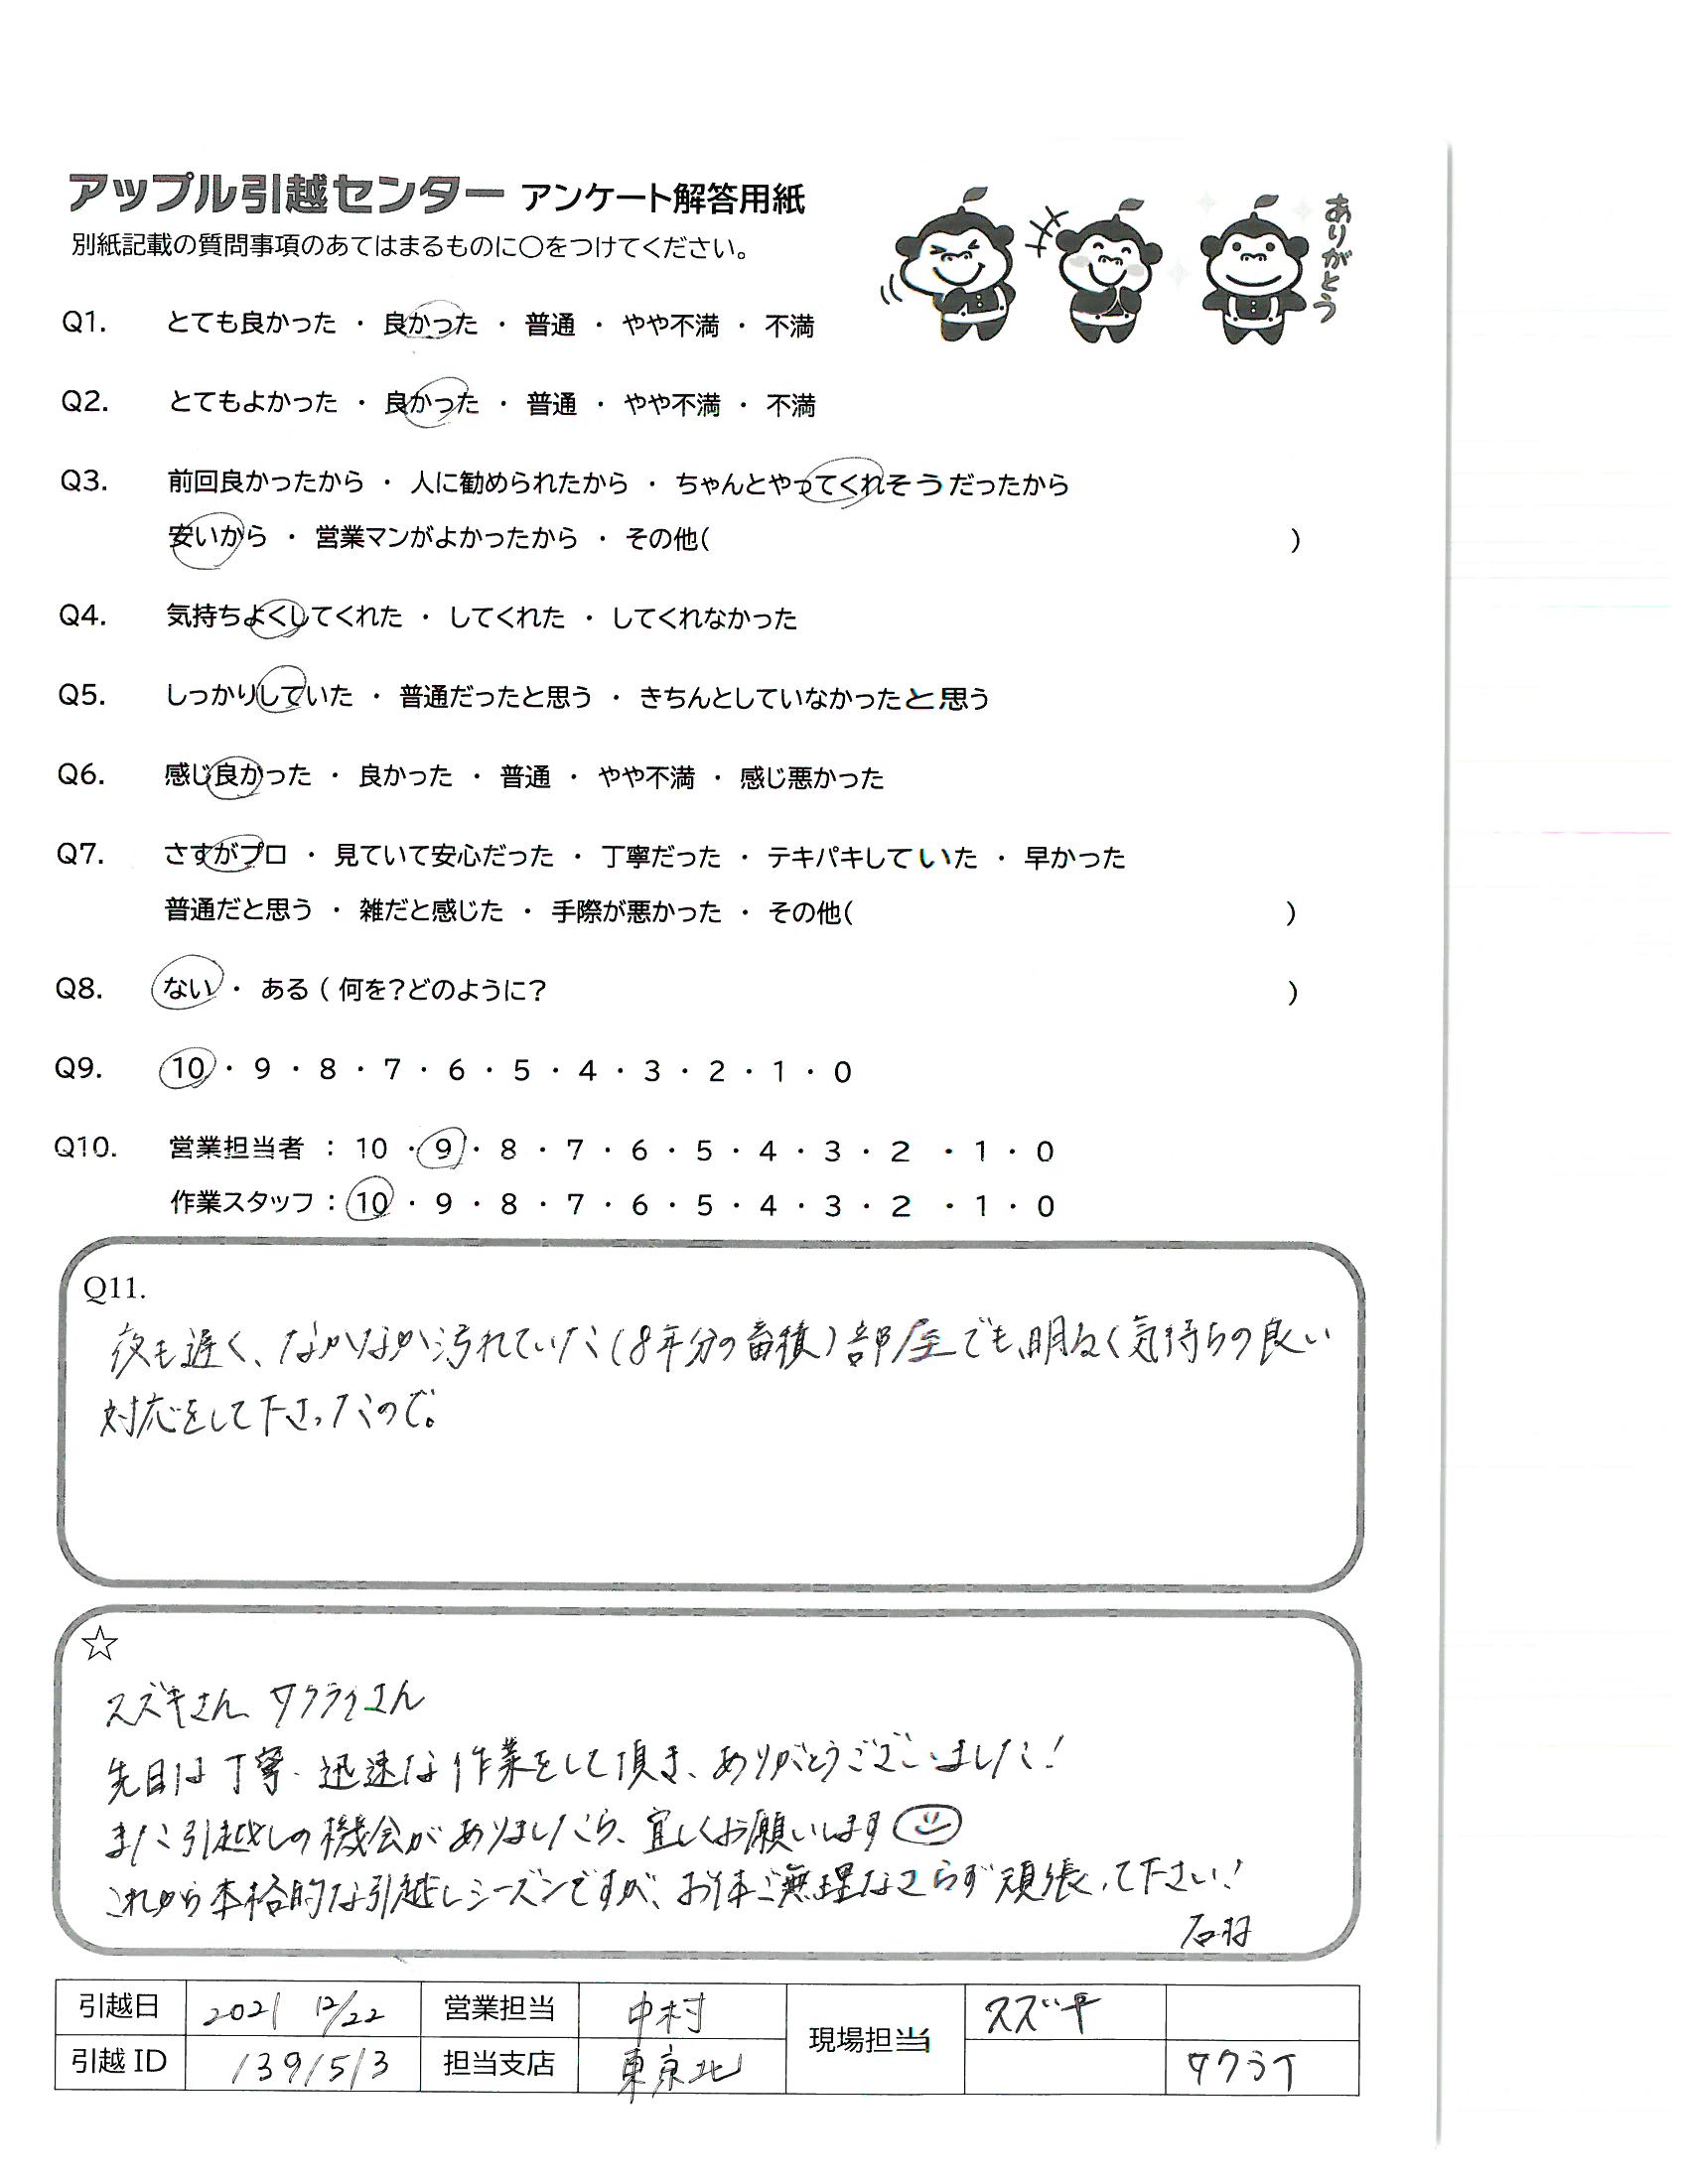 アップル引越センター アンケート解答用紙
別紙記載の質問事項のあてはまるものに○をつけてください。
ありがとう
Q1. とても良かった ・ 良かった ・ 普通 ・ やや不満 ・ 不満
Q2. とてもよかった ・ 良かった ・ 普通 ・ やや不満 ・ 不満
Q3. 前回良かったから ・ 人に勧められたから ・ ちゃんとやってくれそうだったから
安いから ・ 営業マンがよかったから ・ その他( )
Q4. 気持ちよくしてくれた ・ してくれた ・ してくれなかった
Q5. しっかりしていた ・ 普通だったと思う ・ きちんとしていなかったと思う
Q6. 感じ良かった ・ 良かった ・ 普通 ・ やや不満 ・ 感じ悪かった
Q7. さすがプロ ・ 見ていて安心だった ・ 丁寧だった ・ テキパキしていた ・ 早かった
普通だと思う ・ 雑だと感じた ・ 手際が悪かった ・ その他( )
Q8. ない ・ ある ( 何を?どのように? )
Q9. 10 ・ 9 ・ 8 ・ 7 ・ 6 ・ 5 ・ 4 ・ 3 ・ 2 ・ 1 ・ 0
Q10. 営業担当者 : 10 ・ 9 ・ 8 ・ 7 ・ 6 ・ 5 ・ 4 ・ 3 ・ 2 ・ 1 ・ 0
作業スタッフ : 10 ・ 9 ・ 8 ・ 7 ・ 6 ・ 5 ・ 4 ・ 3 ・ 2 ・ 1 ・ 0
Q11.
夜も遅く、なかなか汚れていた(8年分の蓄積)部屋でも、明るく気持ちの良い
対応をして下さったので。
☆
スズキさん、サクライさん
先日は丁寧・迅速な作業をして頂き、ありがとうございました!
また引越しの機会がありましたら、宜しくお願いします
これから本格的な引越しシーズンですが、お体ご無理なさらず頑張って下さい!
引越日 2021 12/22 営業担当 中村 現場担当 スズキ
引越ID 1391513 担当支店 東京北 サクライ